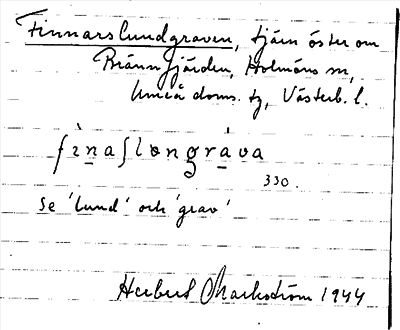 Finnarslundgraven, tjärn öster om
Brännfjärden, Holmöns sn,
Umeå doms. tg, Västerb. l.
fìnaʃlɵngráva
330.
Se 'lund' och 'grav'
Herbert Markström 1944